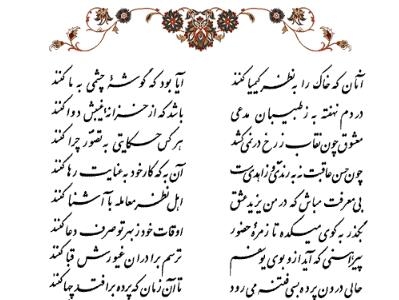 آنان که خاک را به نظر کیمیا کنند آیا بود که گوشهٔ چشمی به ما کنند
دردم نهفته به ز طبیبان مدعی باشد که از خزانه غیبش دوا کنند
معشوق چون نقاب ز رخ در نمی‌کشد هر کس حکایتی به تصور چرا کنند
چون حسن عاقبت نه به رندی و زاهدیست آن به که کار خود به عنایت رها کنند
بی معرفت مباش که در من یزید عشق اهل نظر معامله با آشنا کنند
بگذر به کوی میکده تا زمره حضور اوقات خود ز بهر تو صرف دعا کنند
پیراهنی که آید از او بوی یوسفم ترسم برادران غیورش قبا کنند
حالی درون پرده بسی فتنه می رود تا آن زمان که پرده برافتد چها کنند